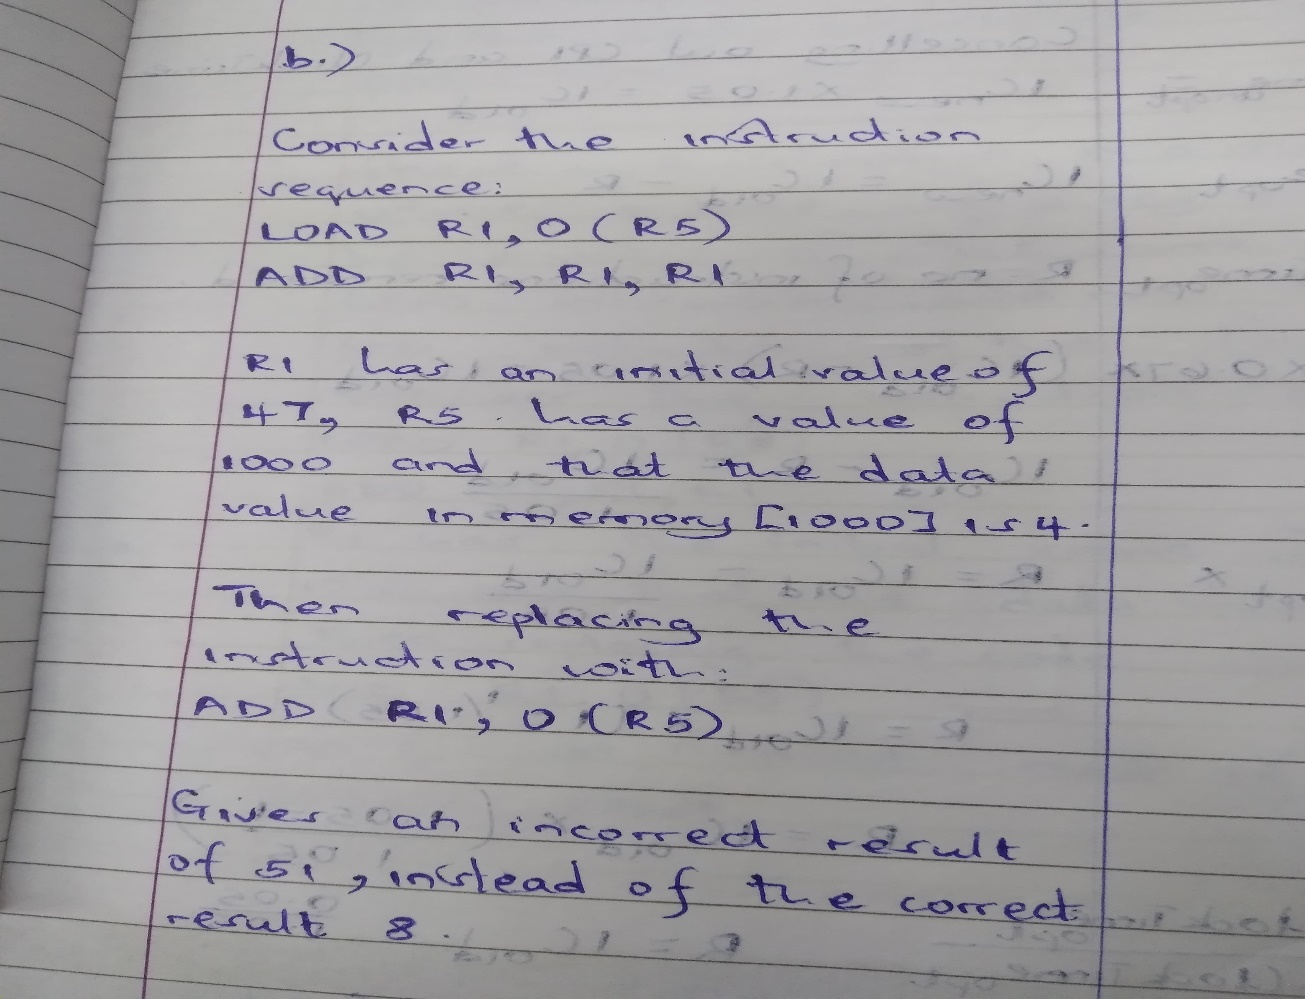 b.)
Consider the instruction
sequence:
LOAD R1, 0 (R5)
ADD R1, R1, R1
R1 has an initial value of
47, R5 has a value of
1000 and that the data
value in memory [1000] is 4.
Then replacing the
instruction with:
ADD R1, 0 (R5)
Gives an incorrect result
of 51, instead of the correct
result 8.